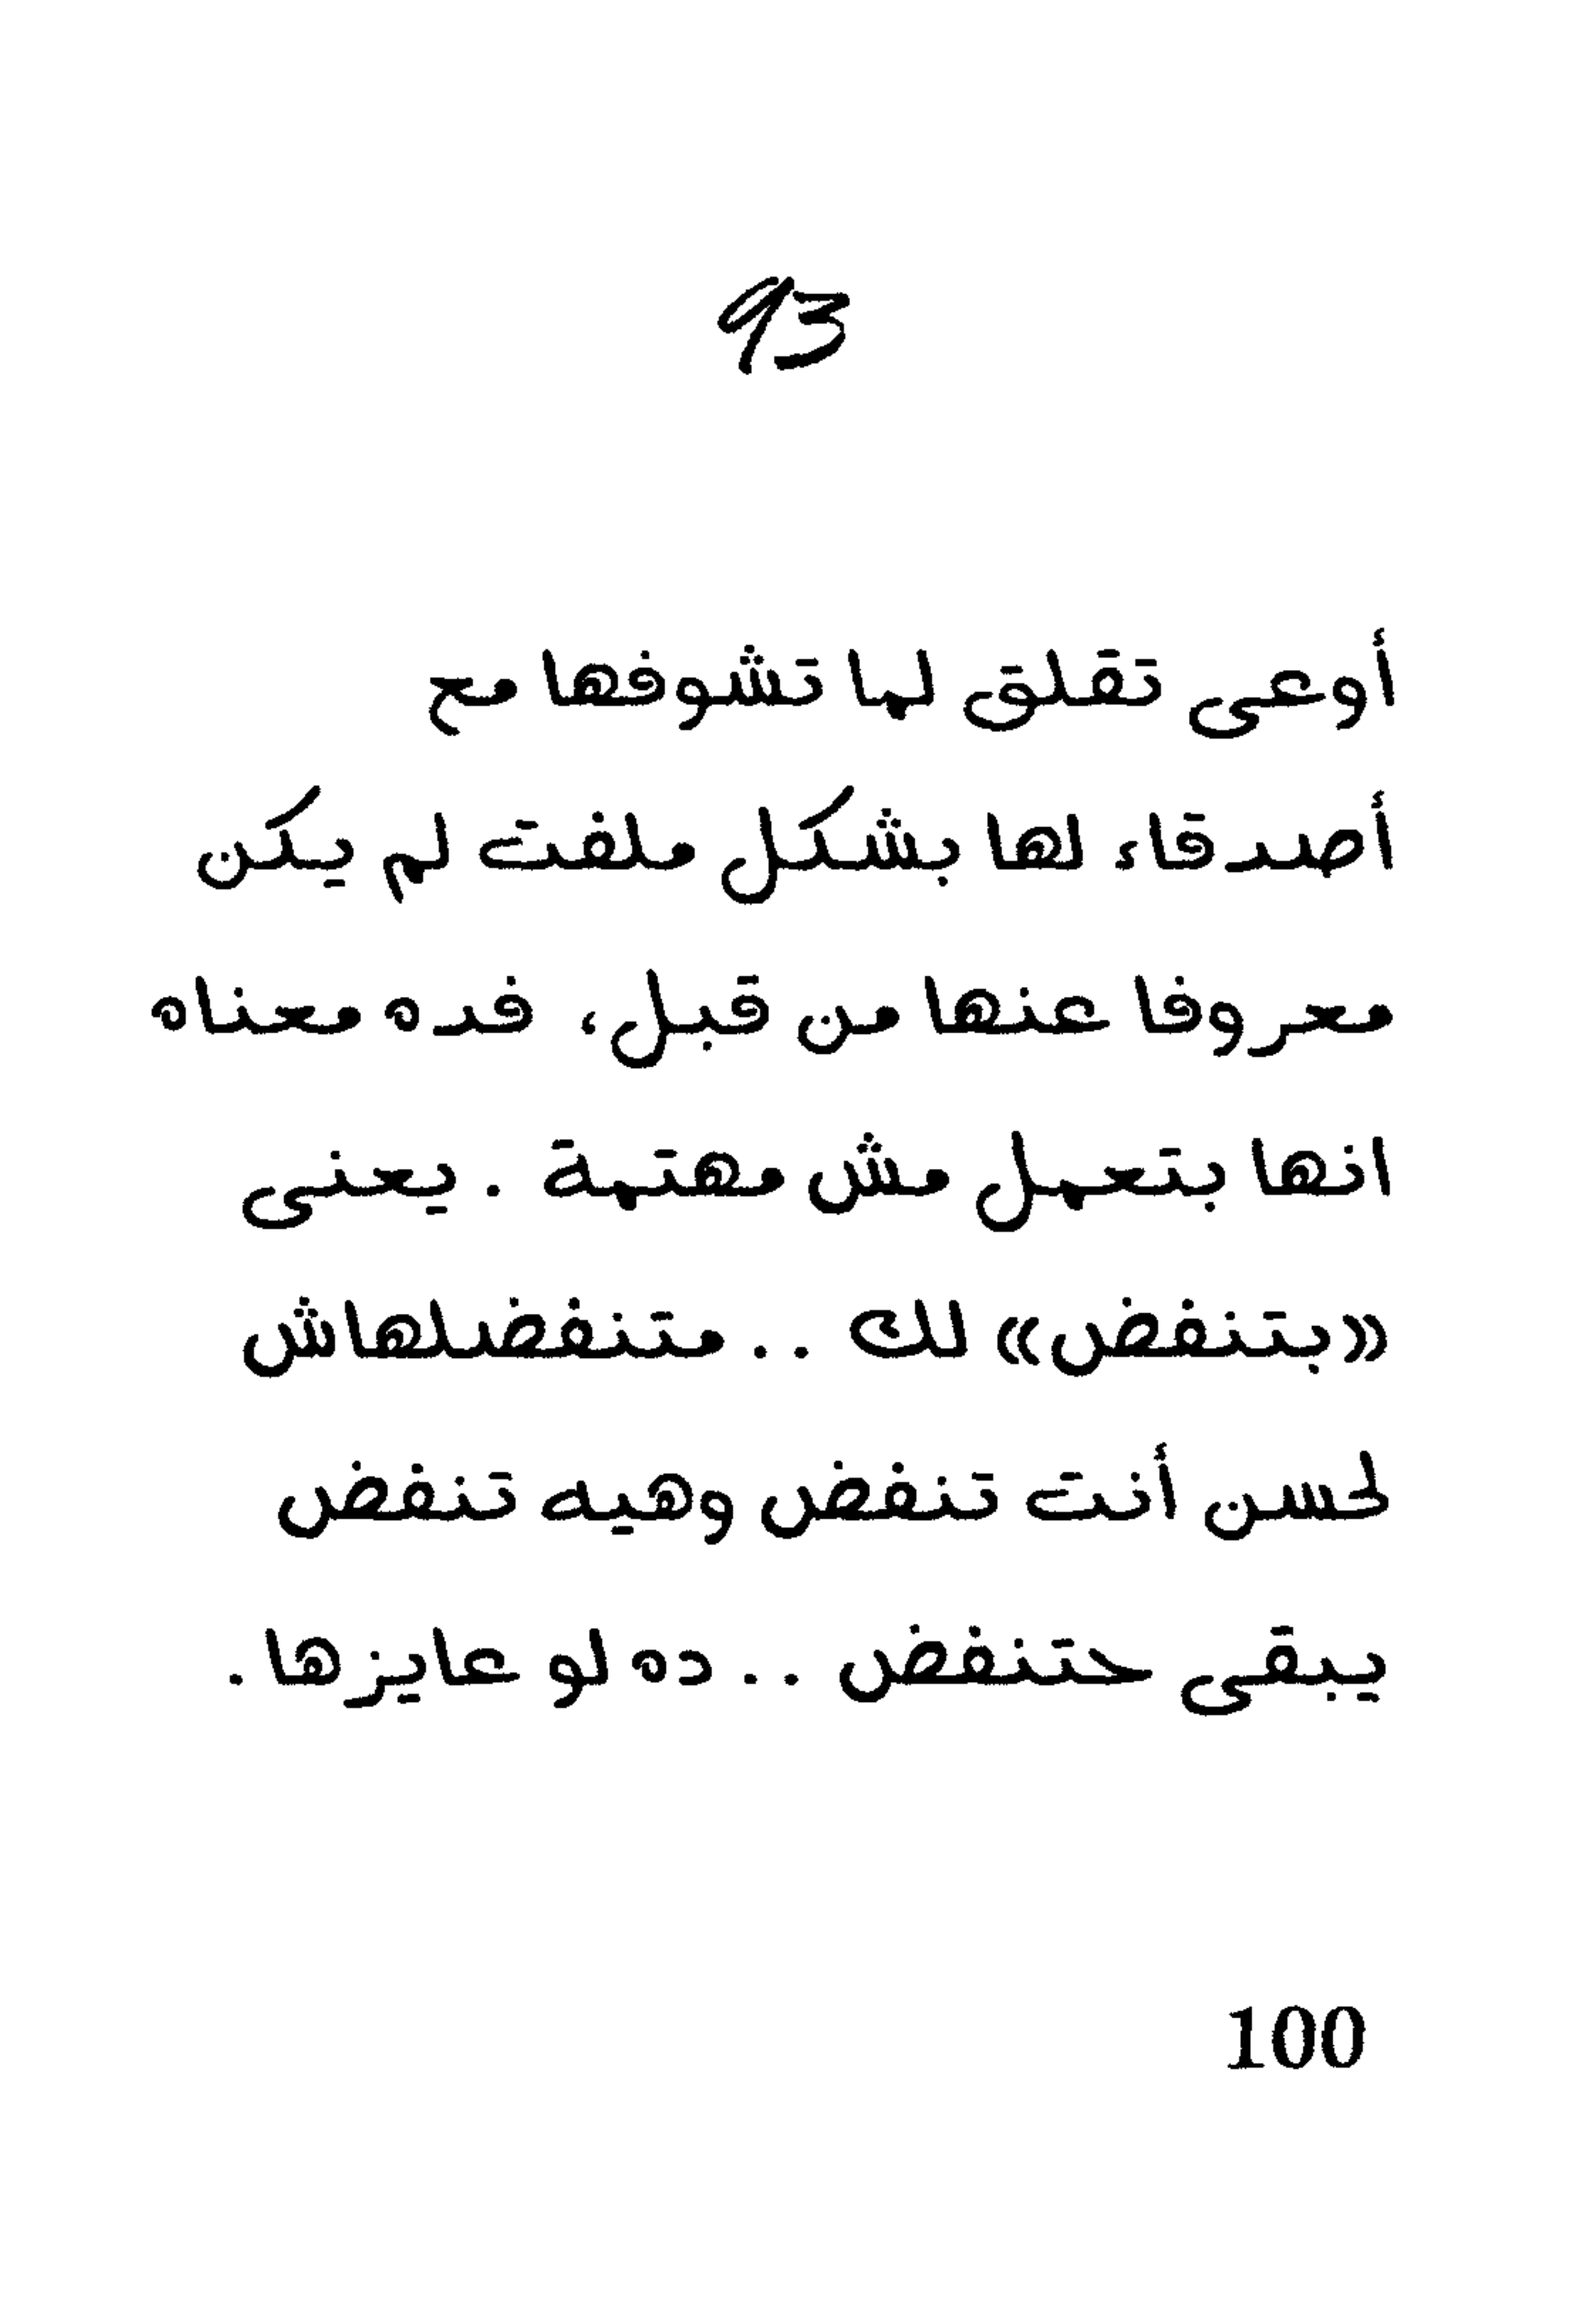 93
أوعى تقلق لما تشوفها مع
أصدقاء لها بشكل ملفت لم يكن
معروفا عنها من قبل، فده معناه
انها بتعمل مش مهتمة . يعنى
«بتنفض» لك .. متنفضلهاش
لحسن أنت تنفض وهيه تنفض
يبقى حتنفض .. ده لو عايزها .
100